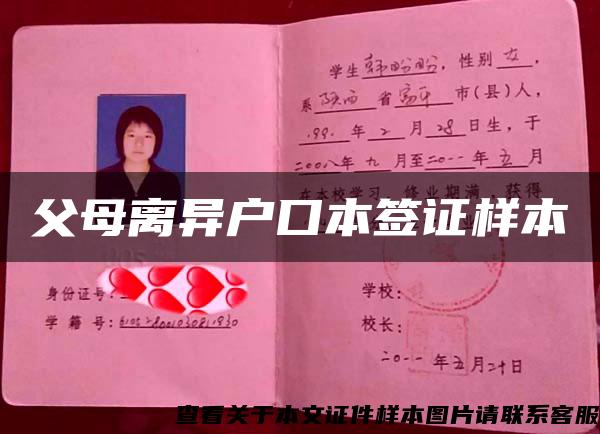 学生韩盼盼,性别女,
系陕西省富平市(县)人,
1991年2月28日生,于
二〇〇八年九月至二〇一一年五月
在本校学习,修业期满,获得
父母离异户口本签证样本
身份证号:
学籍号:
学校:
校长:
二〇一一年五月二十日
查看关于本文证件样本图片请联系客服